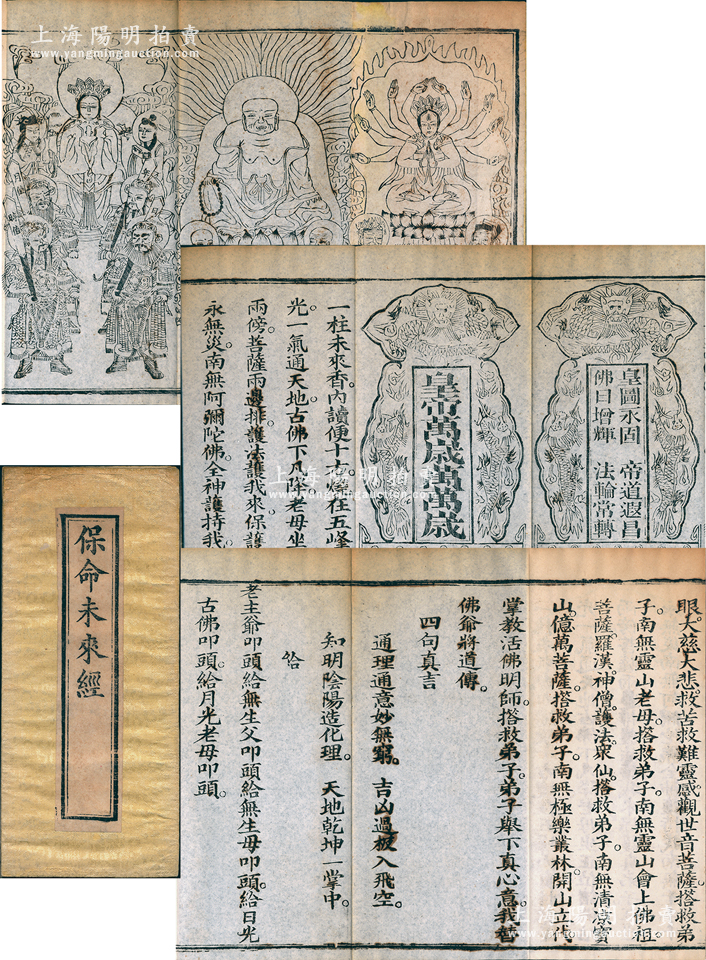 上海陽明拍賣
www.yangmingauction.com
皇圖永固 帝道遐昌
佛日增輝 法輪常轉
皇帝萬歲萬萬歲
一柱未來香。內讀便十方。燒在五峰
光一氣通天地。古佛下凡降。老母坐
兩傍。菩薩兩邊排。護法護我來。保護
永無災。南無阿彌陀佛。全神護持我。
保命未來經
眼。大慈大悲救苦救難靈感觀世音菩薩。搭救弟
子。南無靈山老母。搭救弟子。南無靈山會上佛祖。
菩薩。羅漢。神僧。護法。眾仙。搭救弟子。南無清凉寶
山。億萬菩薩。搭救弟子。南無極樂叢林。開山立代
掌教活佛明師。搭救弟子。弟子舉下真心意。我替
佛爺將道傳。
四句真言
通理通意妙無窮。 吉凶過板入飛空。
知明陰陽造化理。 天地乾坤一掌中。
老主爺叩頭給無生父叩頭給無生母叩頭。給日光
古佛叩頭。給月光老母叩頭。
上海陽明拍賣
www.yangmingauction.com
上海陽明拍賣
www.yangmingauction.com